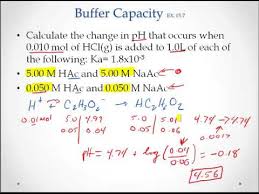 Buffer Capacity EX. 15.7
• Calculate the change in pH that occurs when
0.010 mol of HCl(g) is added to 1.0L of each of
the following: Ka= 1.8x10⁻⁵
• 5.00 M HAc and 5.00 M NaAc
• 0.050 M HAc and 0.050 M NaAc
H⁺ + C₂H₃O₂⁻ → HC₂H₃O₂
0.01mol 5.0 4.99 5.0 5.01 4.74→4.74
0.05 0.04 0.05 0.06 0.0017
pH = 4.74 + log (0.04/0.06) = -0.18
4.56